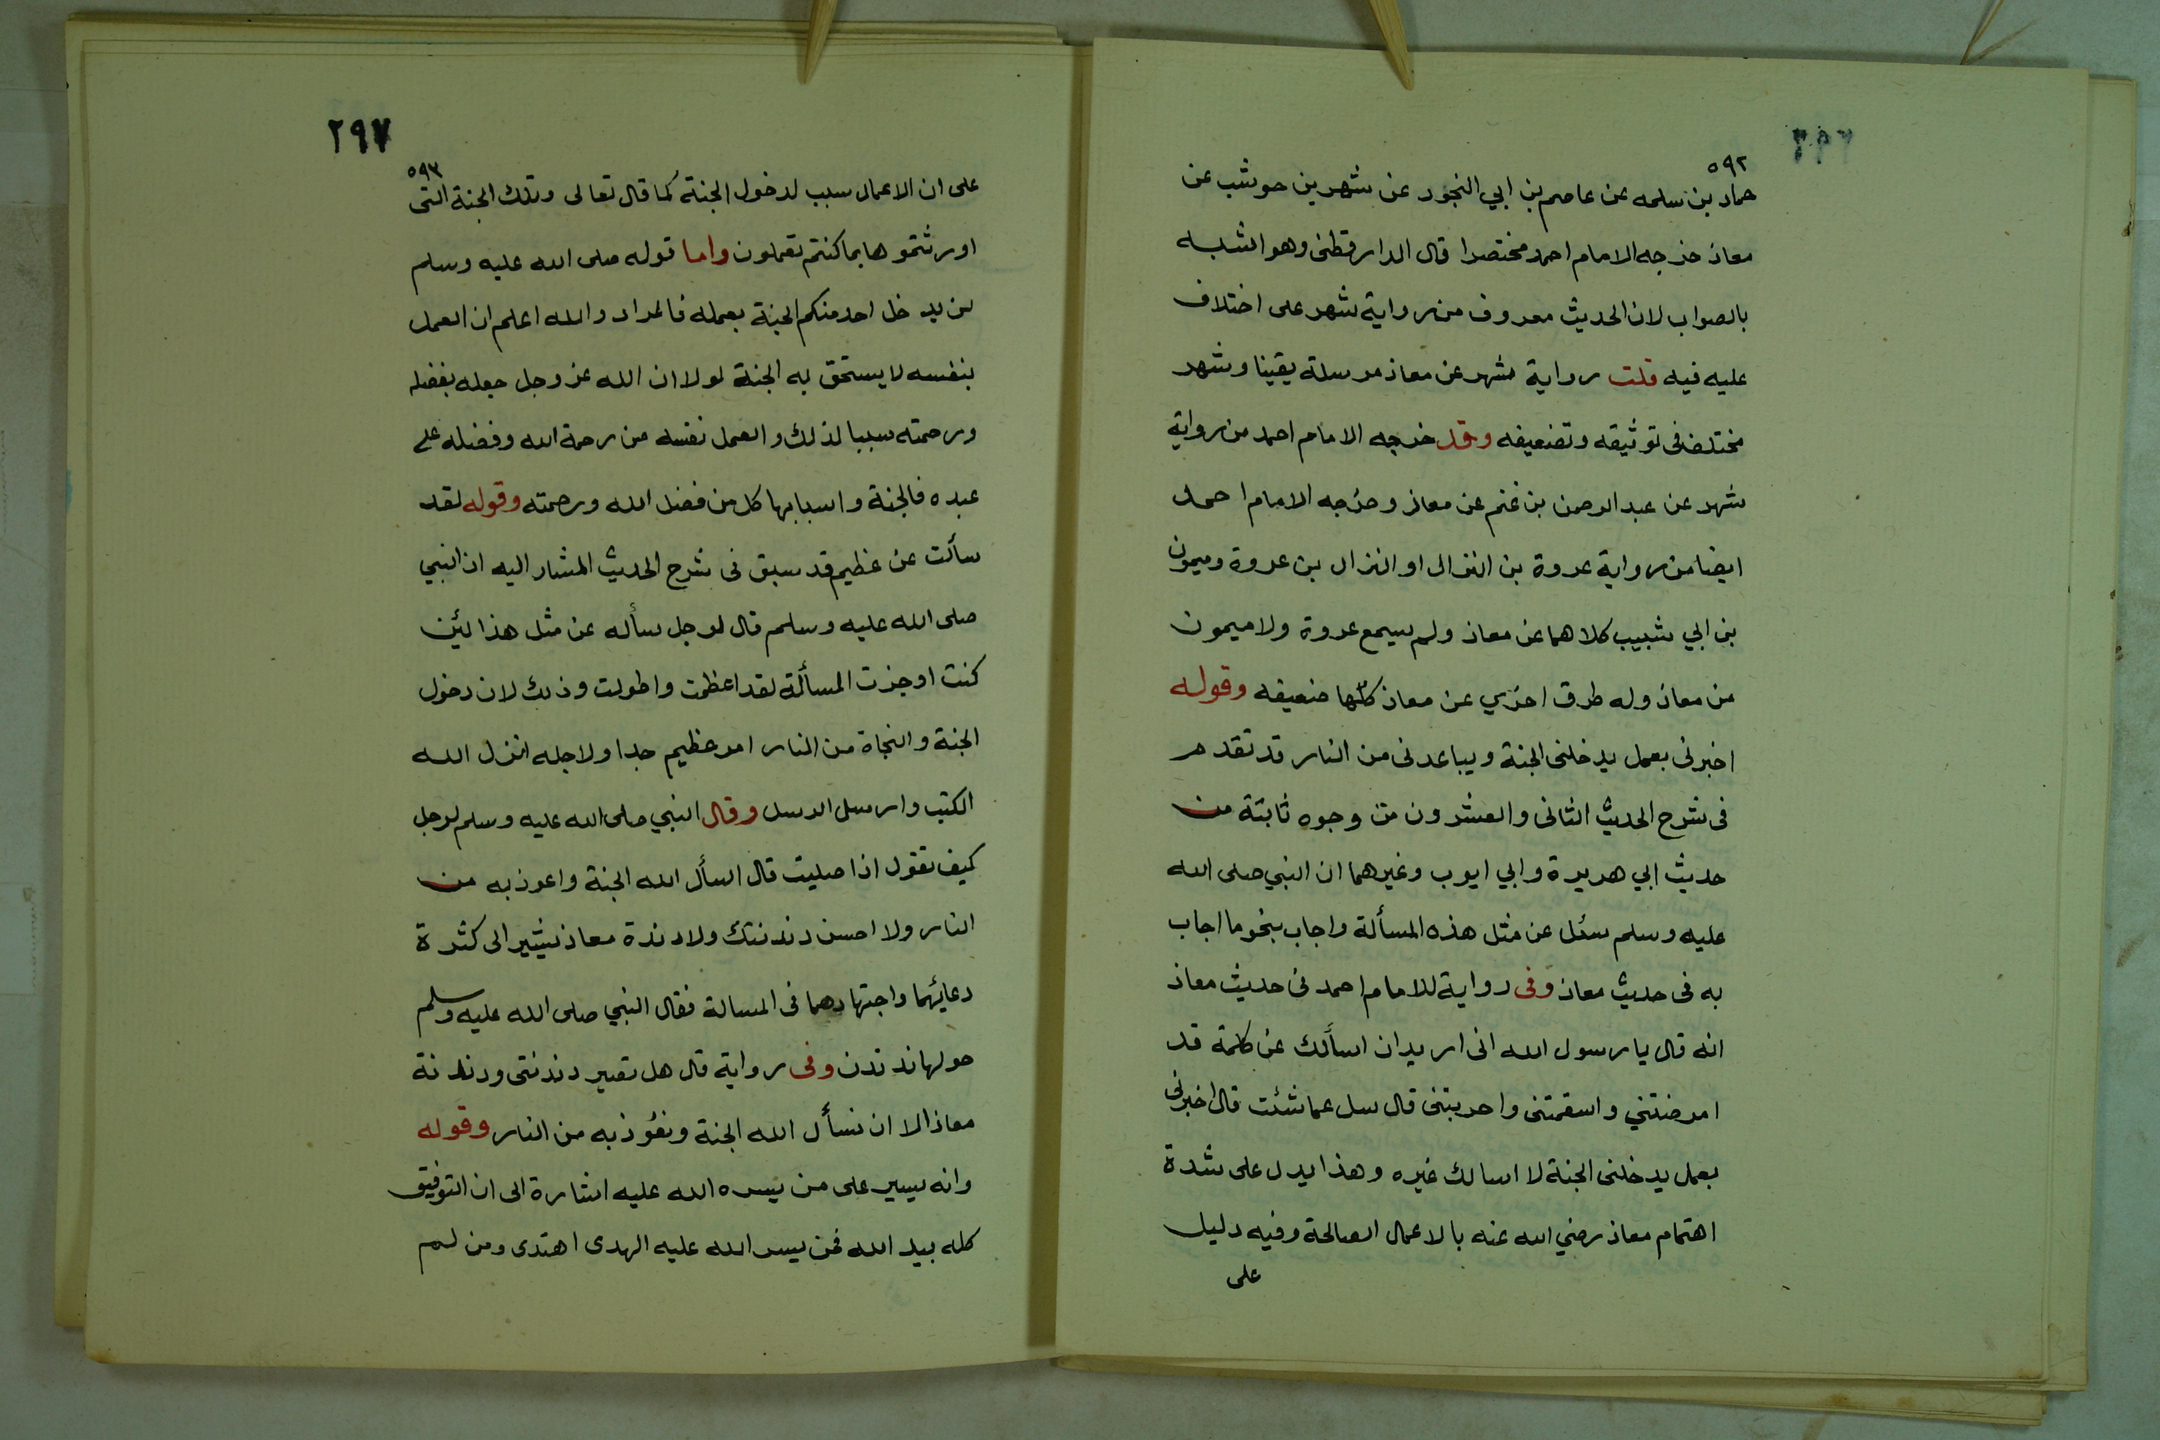 ٥٩٢
حماد بن سلمه عن عاصم بن ابي النجود عن شهر بن حوشب عن
معاذ خرجه الامام احمد مختصرا قال الدارقطنى وهو اشبه
بالصواب لان الحديث معروف من رواية شهر على اختلاف
عليه فيه قلت رواية شهر عن معاذ مرسلة يقينا وشهر
مختلف فى توثيقه وتضعيفه وقد خرجه الامام احمد من رواية
شهر عن عبد الرحمن بن غنم عن معاذ وخرجه الامام احمد
ايضا من رواية عروة بن النزال او النزال بن عروة وميمون
بن ابي شبيب كلاهما عن معاذ ولم يسمع عروة ولا ميمون
من معاذ وله طرق اخري عن معاذ كلها ضعيفه وقوله
اخبرنى بعمل يدخلنى الجنة ويباعدنى من النار قد تقدم
فى شرح الحديث الثانى والعشرون من وجوه ثابتة من
حديث ابي هريرة وابي ايوب وغيرهما ان النبي صلى الله
عليه وسلم سئل عن مثل هذه المسألة واجاب بنحو ما اجاب
به فى حديث معاذ وفى رواية للامام احمد فى حديث معاذ
انه قال يا رسول الله انى اريد ان اسألك عن كلمة قد
امرضتني واسقمتنى واحربتنى قال سل عما شئت قال اخبرنى
بعمل يدخلنى الجنة لا اسالك غيره وهذا يدل على شدة
اهتمام معاذ رضي الله عنه بالاعمال الصالحة وفيه دليل
على
٢٩٧
٥٩٣
على ان الاعمال سبب لدخول الجنة كما قال تعالى وتلك الجنة التى
اورثتموها بما كنتم تعملون واما قوله صلى الله عليه وسلم
لن يدخل احد منكم الجنة بعمله فالمراد والله اعلم ان العمل
بنفسه لا يستحق به الجنة لولا ان الله عز وجل جعله بفضله
ورحمته سببا لذلك والعمل نفسه من رحمة الله وفضله على
عبده فالجنة واسبابها كل من فضل الله ورحمته وقوله لقد
سألت عن عظيم قد سبق فى شرح الحديث المشار اليه ان النبي
صلى الله عليه وسلم قال لرجل سأله عن مثل هذا لئن
كنت اوجزت المسألة لقد اعظمت واطولت وذلك لان دخول
الجنة والنجاة من النار امر عظيم جدا ولاجله انزل الله
الكتب وارسل الرسل وقال النبي صلى الله عليه وسلم لرجل
كيف تقول اذا صليت قال اسأل الله الجنة واعوذ به من
النار ولا احسن دندنتك ولا دندة معاذ يشير الى كثرة
دعايئهما واجتهادهما فى المسالة فقال النبي صلى الله عليه وسلم
حولها ندندن وفى رواية قال هل تصير دندنتى ودندنة
معاذ الا ان نسأل الله الجنة ونعوذ به من النار وقوله
وانه ليسير على من يسره الله عليه اشارة الى ان التوفيق
كله بيد الله فمن يسر الله عليه الهدى اهتدى ومن لم